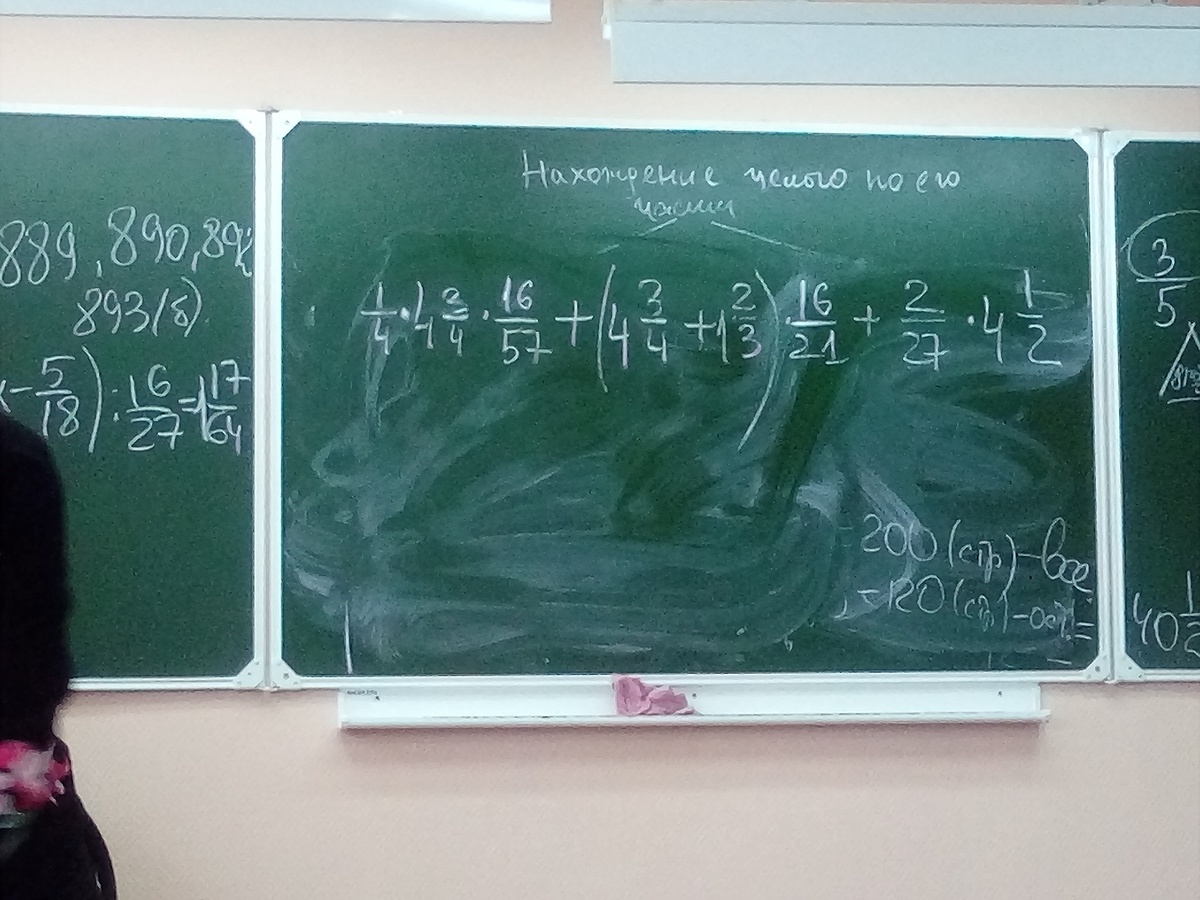 889, 890, 892
893(б)
- 5/18) : 16/27 = 1 17/64
Нахождение целого по его
части
1/4 · 4 3/4 · 16/57 + (4 3/4 + 1 2/3) · 16/21 + 2/27 · 4 1/2
200 (стр) - все
120 (стр) - ост
3/5
40 1/2